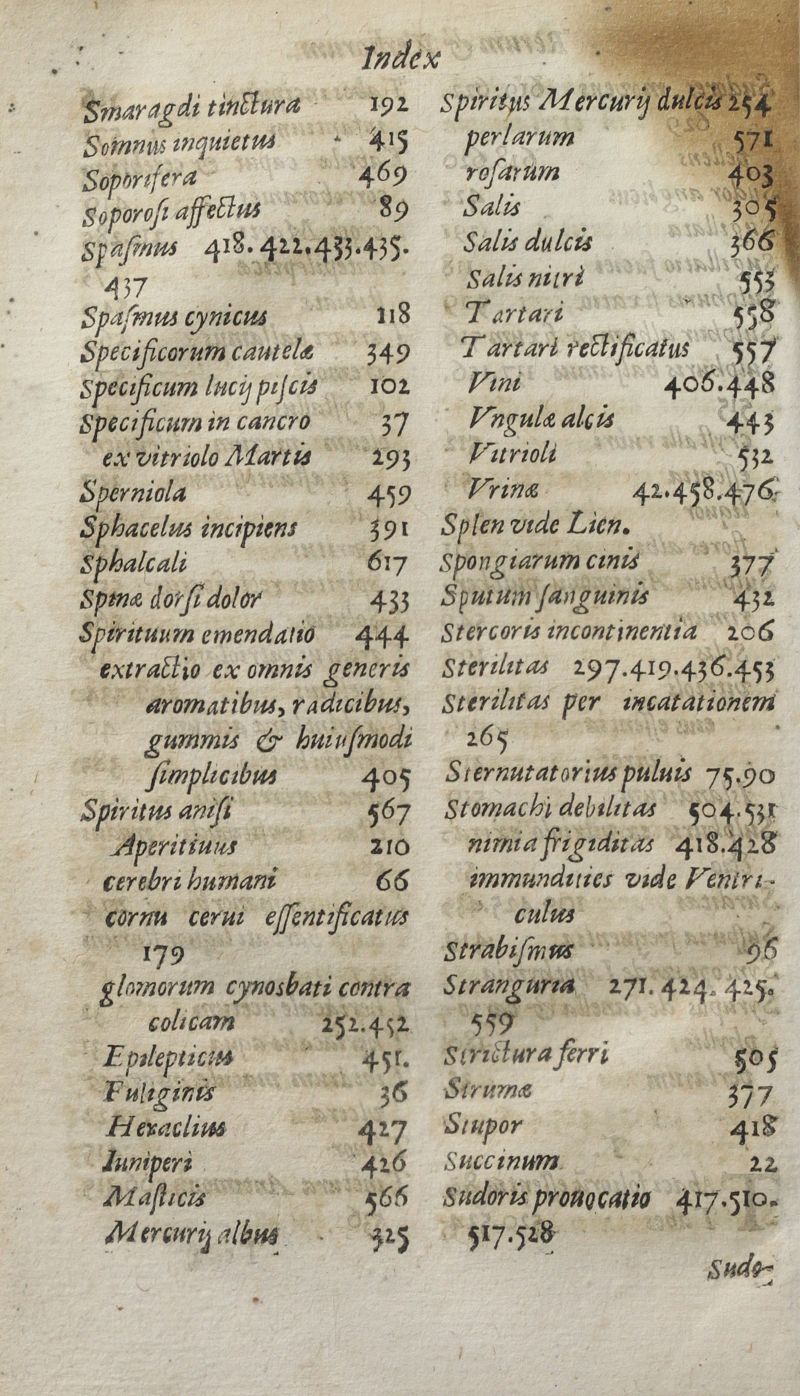 Index
Smaragdi tinctura 192
Somnus inquietus 415
Soporifera 469
Soporosi affectus 89
Spasmus 418.422.433.435.
437
Spasmus cynicus 118
Specificorum cautelæ 349
Specificum lucij piscis 102
Specificum in cancro 37
ex vitriolo Martis 293
Sperniola 459
Sphacelus incipiens 391
Sphalcali 617
Spinæ dorsi dolor 433
Spirituum emendatio 444
extractio ex omnis generis
aromatibus, radicibus,
gummis & huiusmodi
simplicibus 405
Spiritus anisi 567
Aperitiuus 210
cerebri humani 66
cornu cerui essentificatus
179
glomorum cynosbati contra
colicam 252.452
Epilepticus 451.
Fuliginis 36
Heraclius 427
Iuniperi 426
Masticis 566
Mercurij albus 325
Spiritus Mercurij dulcis 254
perlarum 571
rosarum 403
Salis 305
Salis dulcis 366
Salis nitri 553
Tartari 558
Tartari rectificatus 557
Vini 406.448
Vngulæ alcis 443
Vitrioli 532
Vrinæ 42.458.476
Splen vide Lien.
Spongiarum cinis 377
Sputum sanguinis 432
Stercoris incontinentia 206
Sterilitas 297.419.436.453
Sterilitas per incatationem
265
Sternutatorius puluis 75.90
Stomachi debilitas 504.531
nimia frigiditas 418.428
immundities vide Ventri-
culus
Strabismus 96
Stranguria 271.424.425.
559
Strictura ferri 505
Strumæ 377
Stupor 418
Succinum 22
Sudoris prouocatio 417.510.
517.528
Sudo-